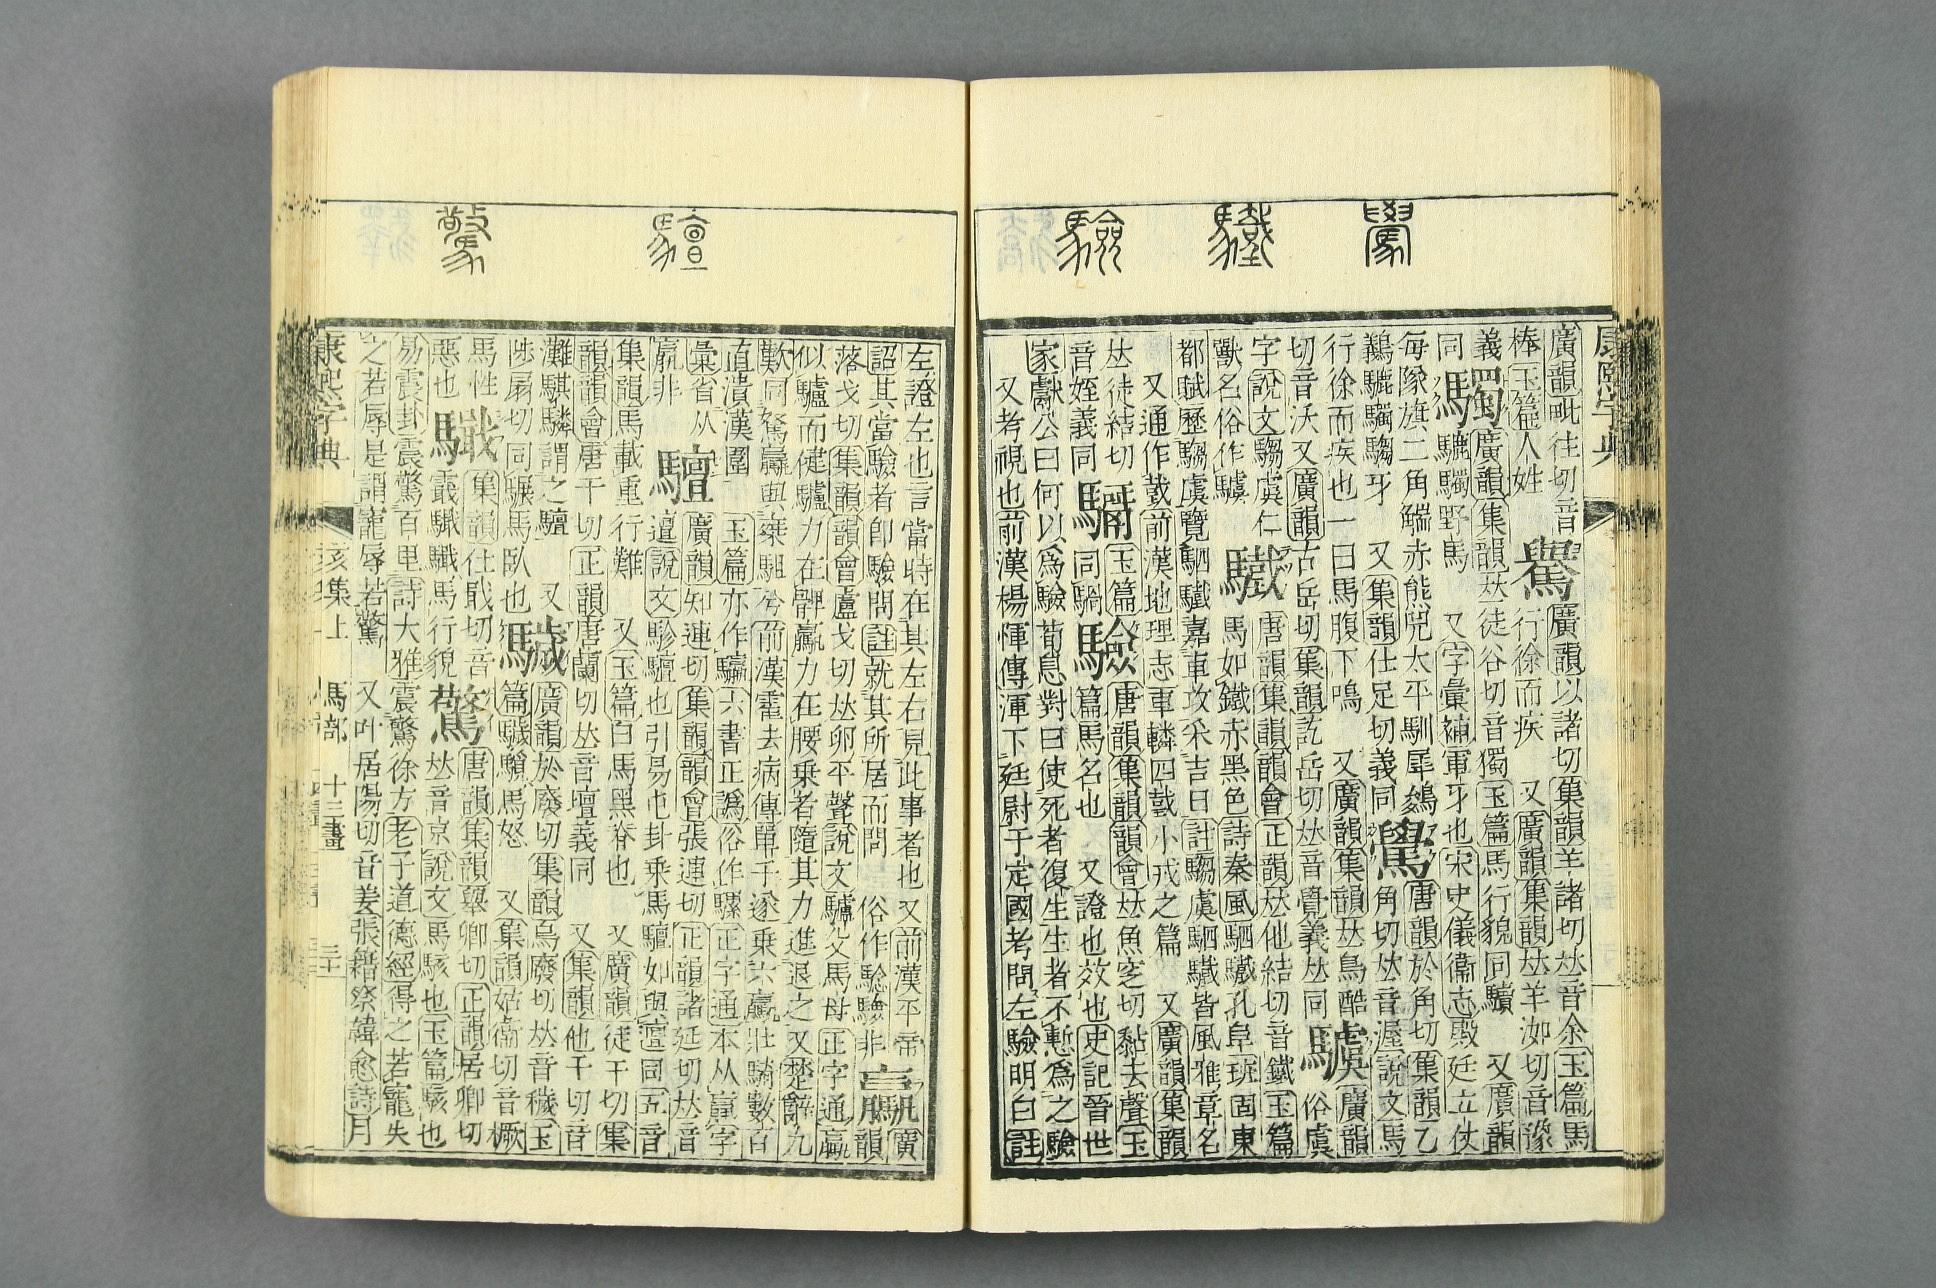 廣韻毗往切音
棒玉篇人姓
𩦡
廣韻以諸切集韻羊諸切𠀤音余玉篇馬
行徐而疾 又廣韻集韻𠀤羊洳切音豫
義同
䮷
廣韻集韻𠀤徒谷切音獨玉篇馬行貌同驥 又廣韻
騼䮷野馬 又字彙補軍牙也宋史儀衞志殿廷立仗
每隊旗二角端赤熊兕太平馴犀鵕
鸃騼䮷騶牙 又集韻仕足切義同
鷽
唐韻於角切集韻乙
角切𠀤音渥說文馬
行徐而疾也一曰馬腹下鳴 又廣韻集韻𠀤烏酷
切音沃又廣韻古岳切集韻訖岳切𠀤音覺義𠀤同
驉
廣韻
俗虞
字說文騶虞仁
獸名俗作驉
驖
唐韻集韻韻會正韻𠀤他結切音鐵玉篇
馬如鐵赤黑色詩秦風駟驖孔阜班固東
都賦歷騶虞覽駟驖嘉車攻采吉日註騶虞駟驖皆風雅章名
又通作䥫前漢地理志車轔四䥫小戎之篇 又廣韻集韻
𠀤徒結切
音姪義同
驈
玉篇
同驈
驗
唐韻集韻韻會𠀤魚窆切黏去聲玉
篇馬名也 又證也效也史記晉世
家獻公曰何以爲驗荀息對曰使死者復生生者不慙爲之驗
又考視也前漢楊惲傳渾下廷尉于定國考問左驗明白註
左證左也言當時在其左右見此事者也又前漢平帝
詔其當驗者卽驗問註就其所居而問 俗作騐驗非
驘
廣韻
落戈切集韻韻會盧戈切𠀤卵平聲說文驢父馬母正字通驘
似驢而健驢力在髀驘力在腰乗者隨其力進退之又楚辭九
歎同駑驘與椉駔兮前漢霍去病傳單于遂乗六驘壯騎數百
直潰漢圍 玉篇亦作騾六書正譌俗作騾正字通本从𦝠字
彙省从
羸非
驙
廣韻知連切集韻韻會張連切正韻諸延切𠀤音
邅說文駗驙也引易屯卦乗馬驙如與邅同五音
集韻馬載重行難 又玉篇白馬黑脊也 又廣韻徒干切集
韻韻會唐干切正韻唐蘭切𠀤音壇義同 又集韻他干切音
灘騏驎謂之驙 又
陟扇切同驏馬臥也
䮹
廣韻於廢切集韻烏廢切𠀤音穢玉
篇䮹䮹馬怒 又集韻姑衞切音橛
馬性
惡也
𩦰
集韻仕戢切音
霵𩦰𩦰馬行貌
驚
唐韻集韻舉卿切正韻居卿切
𠀤音京說文馬駭也玉篇駭也
易震卦震驚百里詩大雅震驚徐方老子道德經得之若寵失
之若辱是謂寵辱若驚 又叶居陽切音姜張籍祭韓愈詩月
康熙字典
亥集上
馬部
十三畫